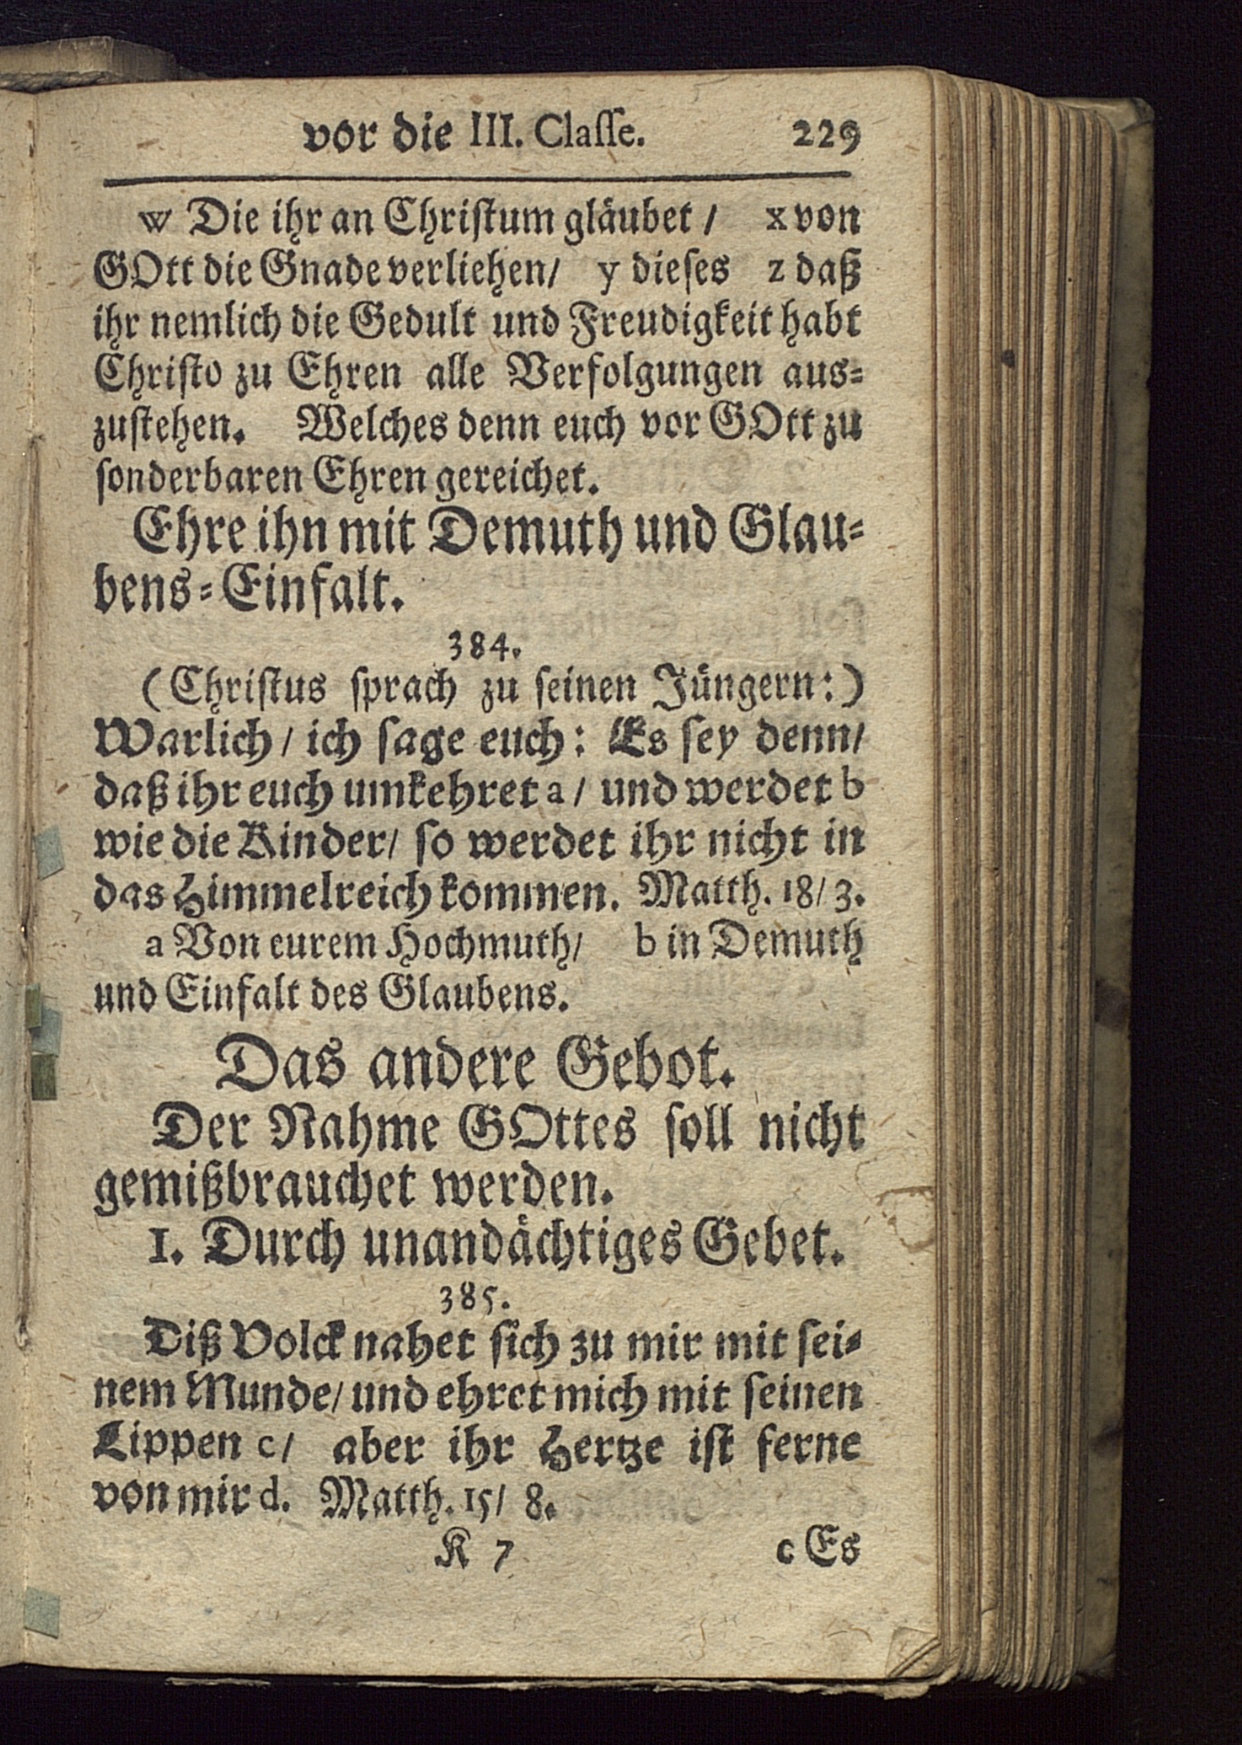 vor die III. Claſſe. 229
w Die ihr an Chriſtum gläubet / x von
GOtt die Gnade verliehen / y dieſes z daß
ihr nemlich die Gedult und Freudigkeit habt
Chriſto zu Ehren alle Verfolgungen aus-
zuſtehen. Welches denn euch vor GOtt zu
ſonderbaren Ehren gereichet.
Ehre ihn mit Demuth und Glau-
bens-Einfalt.
384.
(Chriſtus ſprach zu ſeinen Jüngern:)
Warlich / ich ſage euch: Es ſey denn /
daß ihr euch umkehret a / und werdet b
wie die Kinder / ſo werdet ihr nicht in
das Himmelreich kommen. Matth. 18 / 3.
a Von eurem Hochmuth / b in Demuth
und Einfalt des Glaubens.
Das andere Gebot.
Der Nahme GOttes ſoll nicht
gemißbrauchet werden.
1. Durch unandächtiges Gebet.
385.
Diß Volck nahet ſich zu mir mit ſei-
nem Munde / und ehret mich mit ſeinen
Lippen c / aber ihr Hertze iſt ferne
von mir d. Matth. 15 / 8.
K 7 c Es